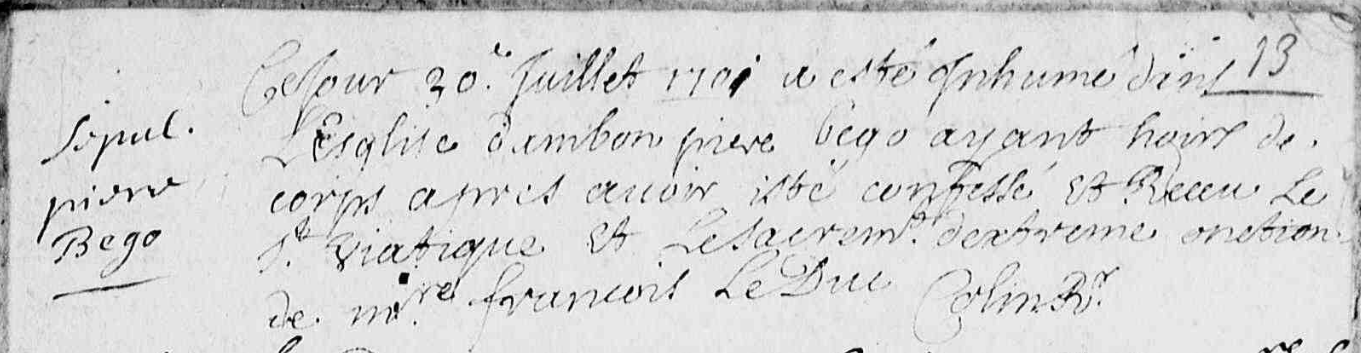 13
Ce Jour 30.e Juillet 1701 a esté Inhumé dans
Sepul.
L'Esglise dambon piere bego ayant hoirs de
pierre
corps apres auoir esté confessé Et Receu Le
Bego
st. Viatique Et Le sacremt. dextreme onction
de mre. francois Le Duc Colin Rr.